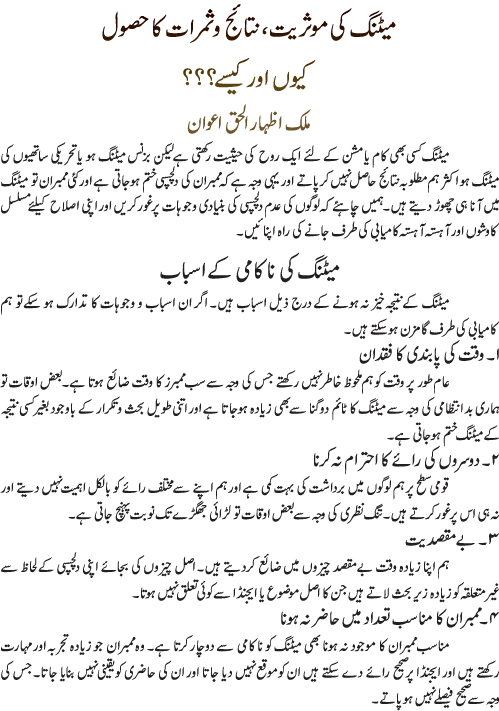 میٹنگ کی موثریت، نتائج وثمرات کا حصول
کیوں اور کیسے؟؟؟
ملک اظہار الحق اعوان
میٹنگ کسی بھی کام یا مشن کے لئے ایک روح کی حیثیت رکھتی ہے لیکن بزنس میٹنگ ہو یا تحریکی ساتھیوں کی
میٹنگ ہو اکثر ہم مطلوبہ نتائج حاصل نہیں کر پاتے اور یہی وجہ ہے کہ ممبران کی دلچسپی ختم ہو جاتی ہے اور کئی ممبران تو میٹنگ
میں آنا ہی چھوڑ دیتے ہیں۔ ہمیں چاہئے کہ لوگوں کی عدم دلچسپی کی بنیادی وجوہات پر غور کریں اور اپنی اصلاح کیلئے مسلسل
کاوشوں اور آہستہ آہستہ کامیابی کی طرف جانے کی راہ اپنائیں۔
میٹنگ کی ناکامی کے اسباب
میٹنگ کے نتیجہ خیز نہ ہونے کے درج ذیل اسباب ہیں۔ اگر ان اسباب و وجوہات کا تدارک ہو سکے تو ہم
کامیابی کی طرف گامزن ہو سکتے ہیں۔
۱۔ وقت کی پابندی کا فقدان
عام طور پر وقت کو ہم ملحوظ خاطر نہیں رکھتے جس کی وجہ سے سب ممبرز کا وقت ضائع ہوتا ہے۔ بعض اوقات تو
ہماری بد انتظامی کی وجہ سے میٹنگ کا ٹائم دوگنا سے بھی زیادہ ہو جاتا ہے اور اتنی طویل بحث و تکرار کے باوجود بغیر کسی نتیجہ
کے میٹنگ ختم ہو جاتی ہے۔
۲۔ دوسروں کی رائے کا احترام نہ کرنا
قومی سطح پر ہم لوگوں میں برداشت کی بہت کمی ہے اور ہم اپنے سے مختلف رائے کو بالکل اہمیت نہیں دیتے اور
نہ ہی اس پر غور کرتے ہیں۔ تنگ نظری کی وجہ سے بعض اوقات تو لڑائی جھگڑے تک نوبت پہنچ جاتی ہے۔
۳۔ بے مقصدیت
ہم اپنا زیادہ وقت بے مقصد چیزوں میں ضائع کر دیتے ہیں۔ اصل چیزوں کی بجائے اپنی دلچسپی کے لحاظ سے
غیر متعلقہ کو زیادہ زیر بحث لاتے ہیں جن کا اصل موضوع یا ایجنڈا سے کوئی تعلق نہیں ہوتا۔
۴۔ ممبران کا مناسب تعداد میں حاضر نہ ہونا
مناسب ممبران کا موجود نہ ہونا بھی میٹنگ کو ناکامی سے دوچار کرتا ہے۔ وہ ممبران جو زیادہ تجربہ اور مہارت
رکھتے ہیں اور ایجنڈا پر صحیح رائے دے سکتے ہیں ان کو موقع نہیں دیا جاتا اور ان کی حاضری کو یقینی نہیں بنایا جاتا۔ جس کی
وجہ سے صحیح فیصلے نہیں ہو پاتے۔